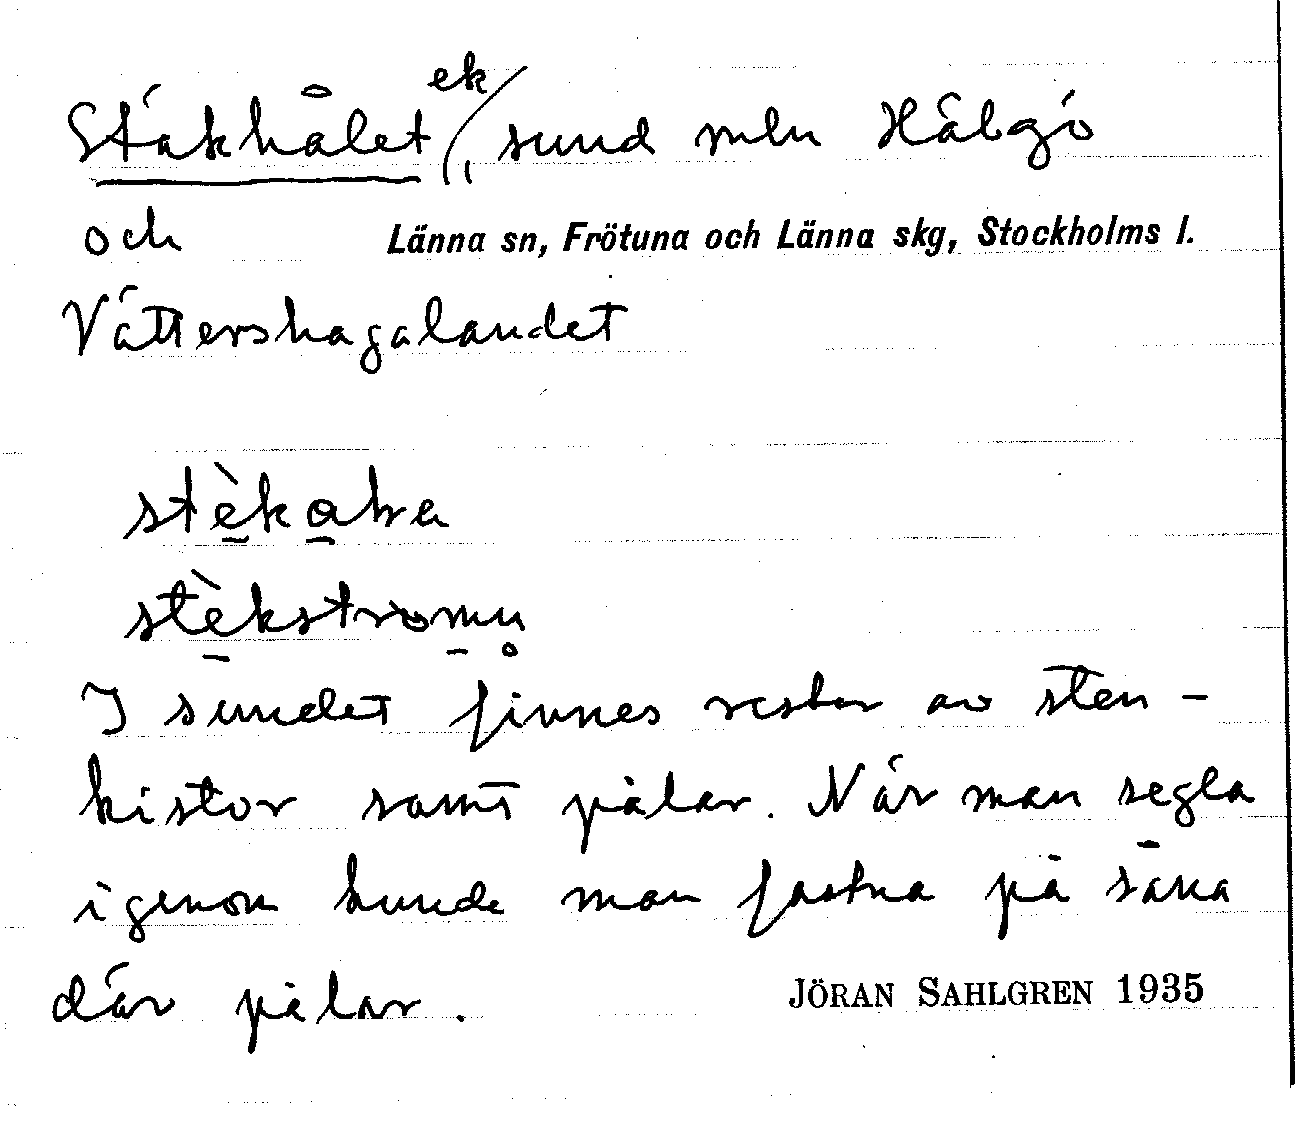 Stäkhålet ek, sund mln Hälgö
och Länna sn, Frötuna och Länna skg, Stockholms l.
Vättershagalandet
stèkaka
stèkstromn̥
I sundet finnes rester av sten-
kistor samt pålar. När man segla
igenom kunde man fastna på såna
där pålar.
JÖRAN SAHLGREN 1935